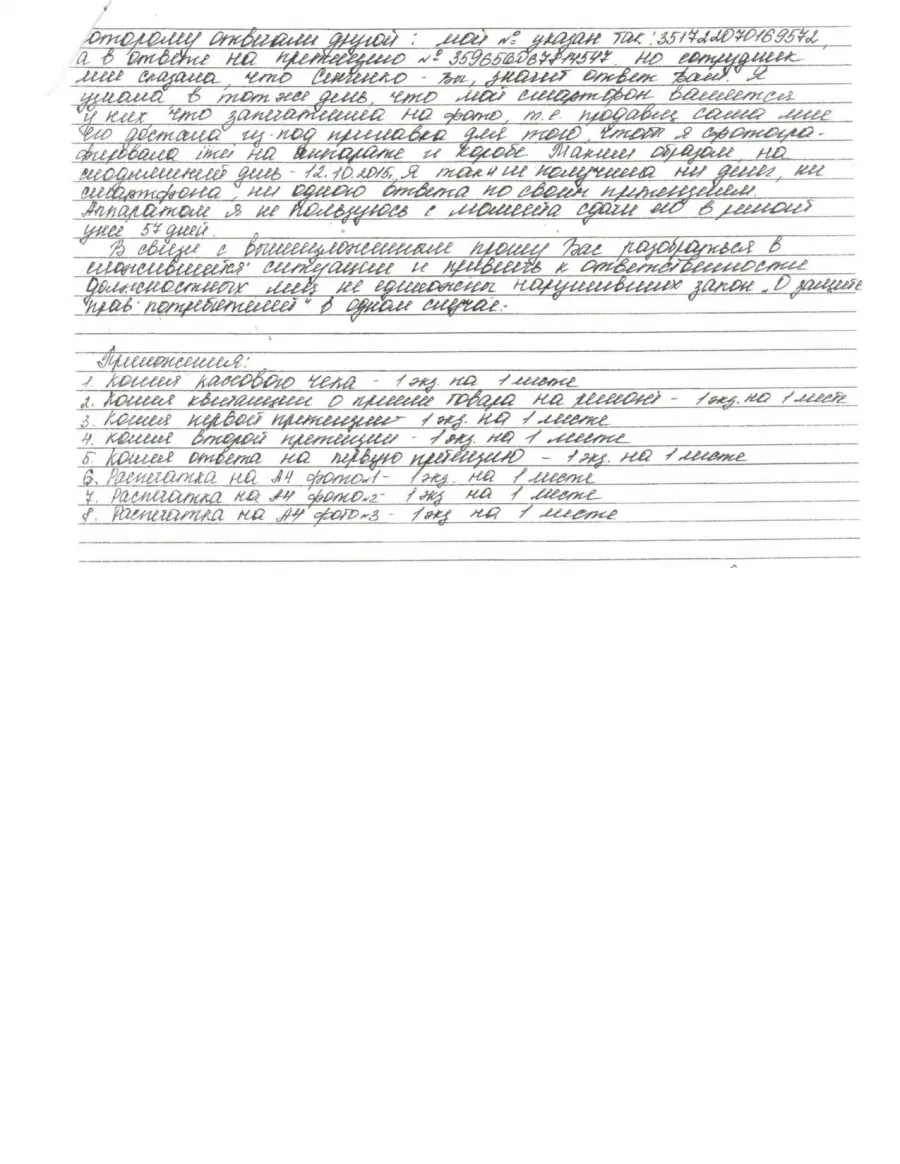 оторому отвечали другой: мой № указан так: 351722070169572,
а в ответе на претензию № 359656067814547 но сотрудник
мне сказала, что Сененко - вы, значит ответ Вам. Я
узнала в тот же день, что мой смартфон валяется
у них, что запечатлила на фото, т.е. продавец сама мне
его достала из-под прилавка для того, чтобы я сфотогра-
фировала imei на аппарате и коробе. Таким образом, на
сегодняшний день - 12.10.2015, я так и не получила ни денег, ни
смартфона, ни одного ответа по своим претензиям.
Аппаратом я не пользуюсь с момента сдачи его в ремонт
уже 57 дней.
В связи с вышеизложенным прошу Вас разобраться в
сложившейся ситуации и привлечь к ответственности
должностных лиц не единожды нарушивших закон „О защите
прав потребителей" в одном случае.
Приложения:
1. Копия кассового чека - 1 экз. на 1 листе
2. Копия квитанции о приеме товара на ремонт - 1 экз. на 1 листе
3. Копия первой претензии - 1 экз. на 1 листе
4. Копия второй претензии - 1 экз. на 1 листе
5. Копия ответа на первую претензию - 1 экз. на 1 листе
6. Распечатка на А4 фото №1 - 1 экз. на 1 листе
7. Распечатка на А4 фото №2 - 1 экз на 1 листе
8. Распечатка на А4 фото №3 - 1 экз на 1 листе